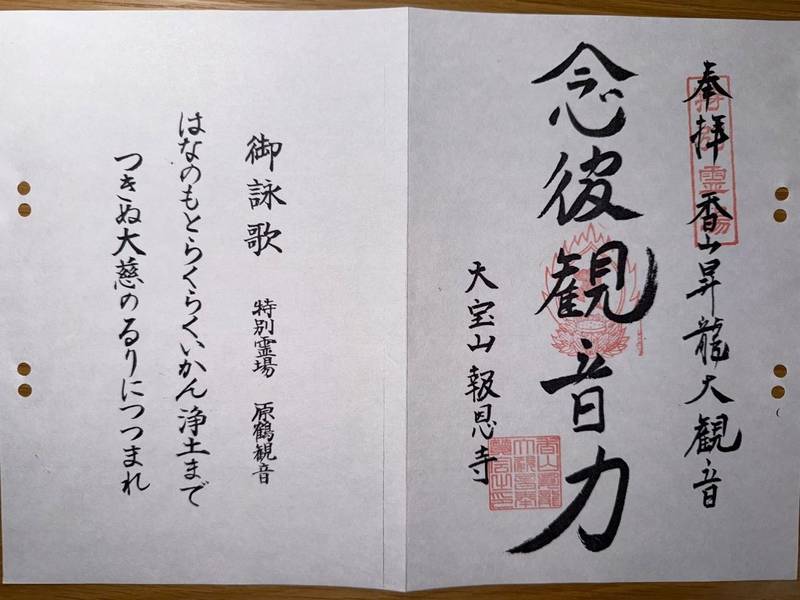 奉拝 香山昇龍大観音
念彼観音力
大宝山 報恩寺
特別霊場
御詠歌 特別霊場 原鶴観音
はなのもとらくらくいかん浄土まで
つきぬ大慈のるりにつつまれ